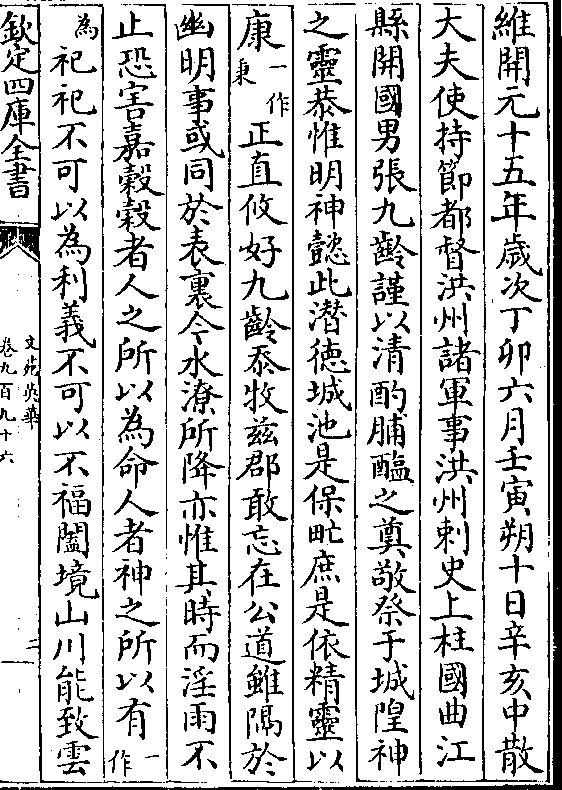 維開元十五年歲次丁卯六月壬寅朔十日辛亥中散
大夫使持節都督洪州諸軍事洪州刺史上柱國曲江
縣開國男張九齡謹以清酌脯醢之奠敬祭于城隍神
之靈恭惟明神懿此潛徳城池是保甿庶是依精靈以
康一作秉正直攸好九齡忝牧兹郡敢忘在公道雖隔於
幽明事或同於表裏今水潦所降亦惟其時而淫雨不
止恐害嘉穀穀者人之所以為命人者神之所以有一作
為祀祀不可以為利義不可以不福闔境山川能致雲
欽定四庫全書
文苑英華
卷九百九十六
二